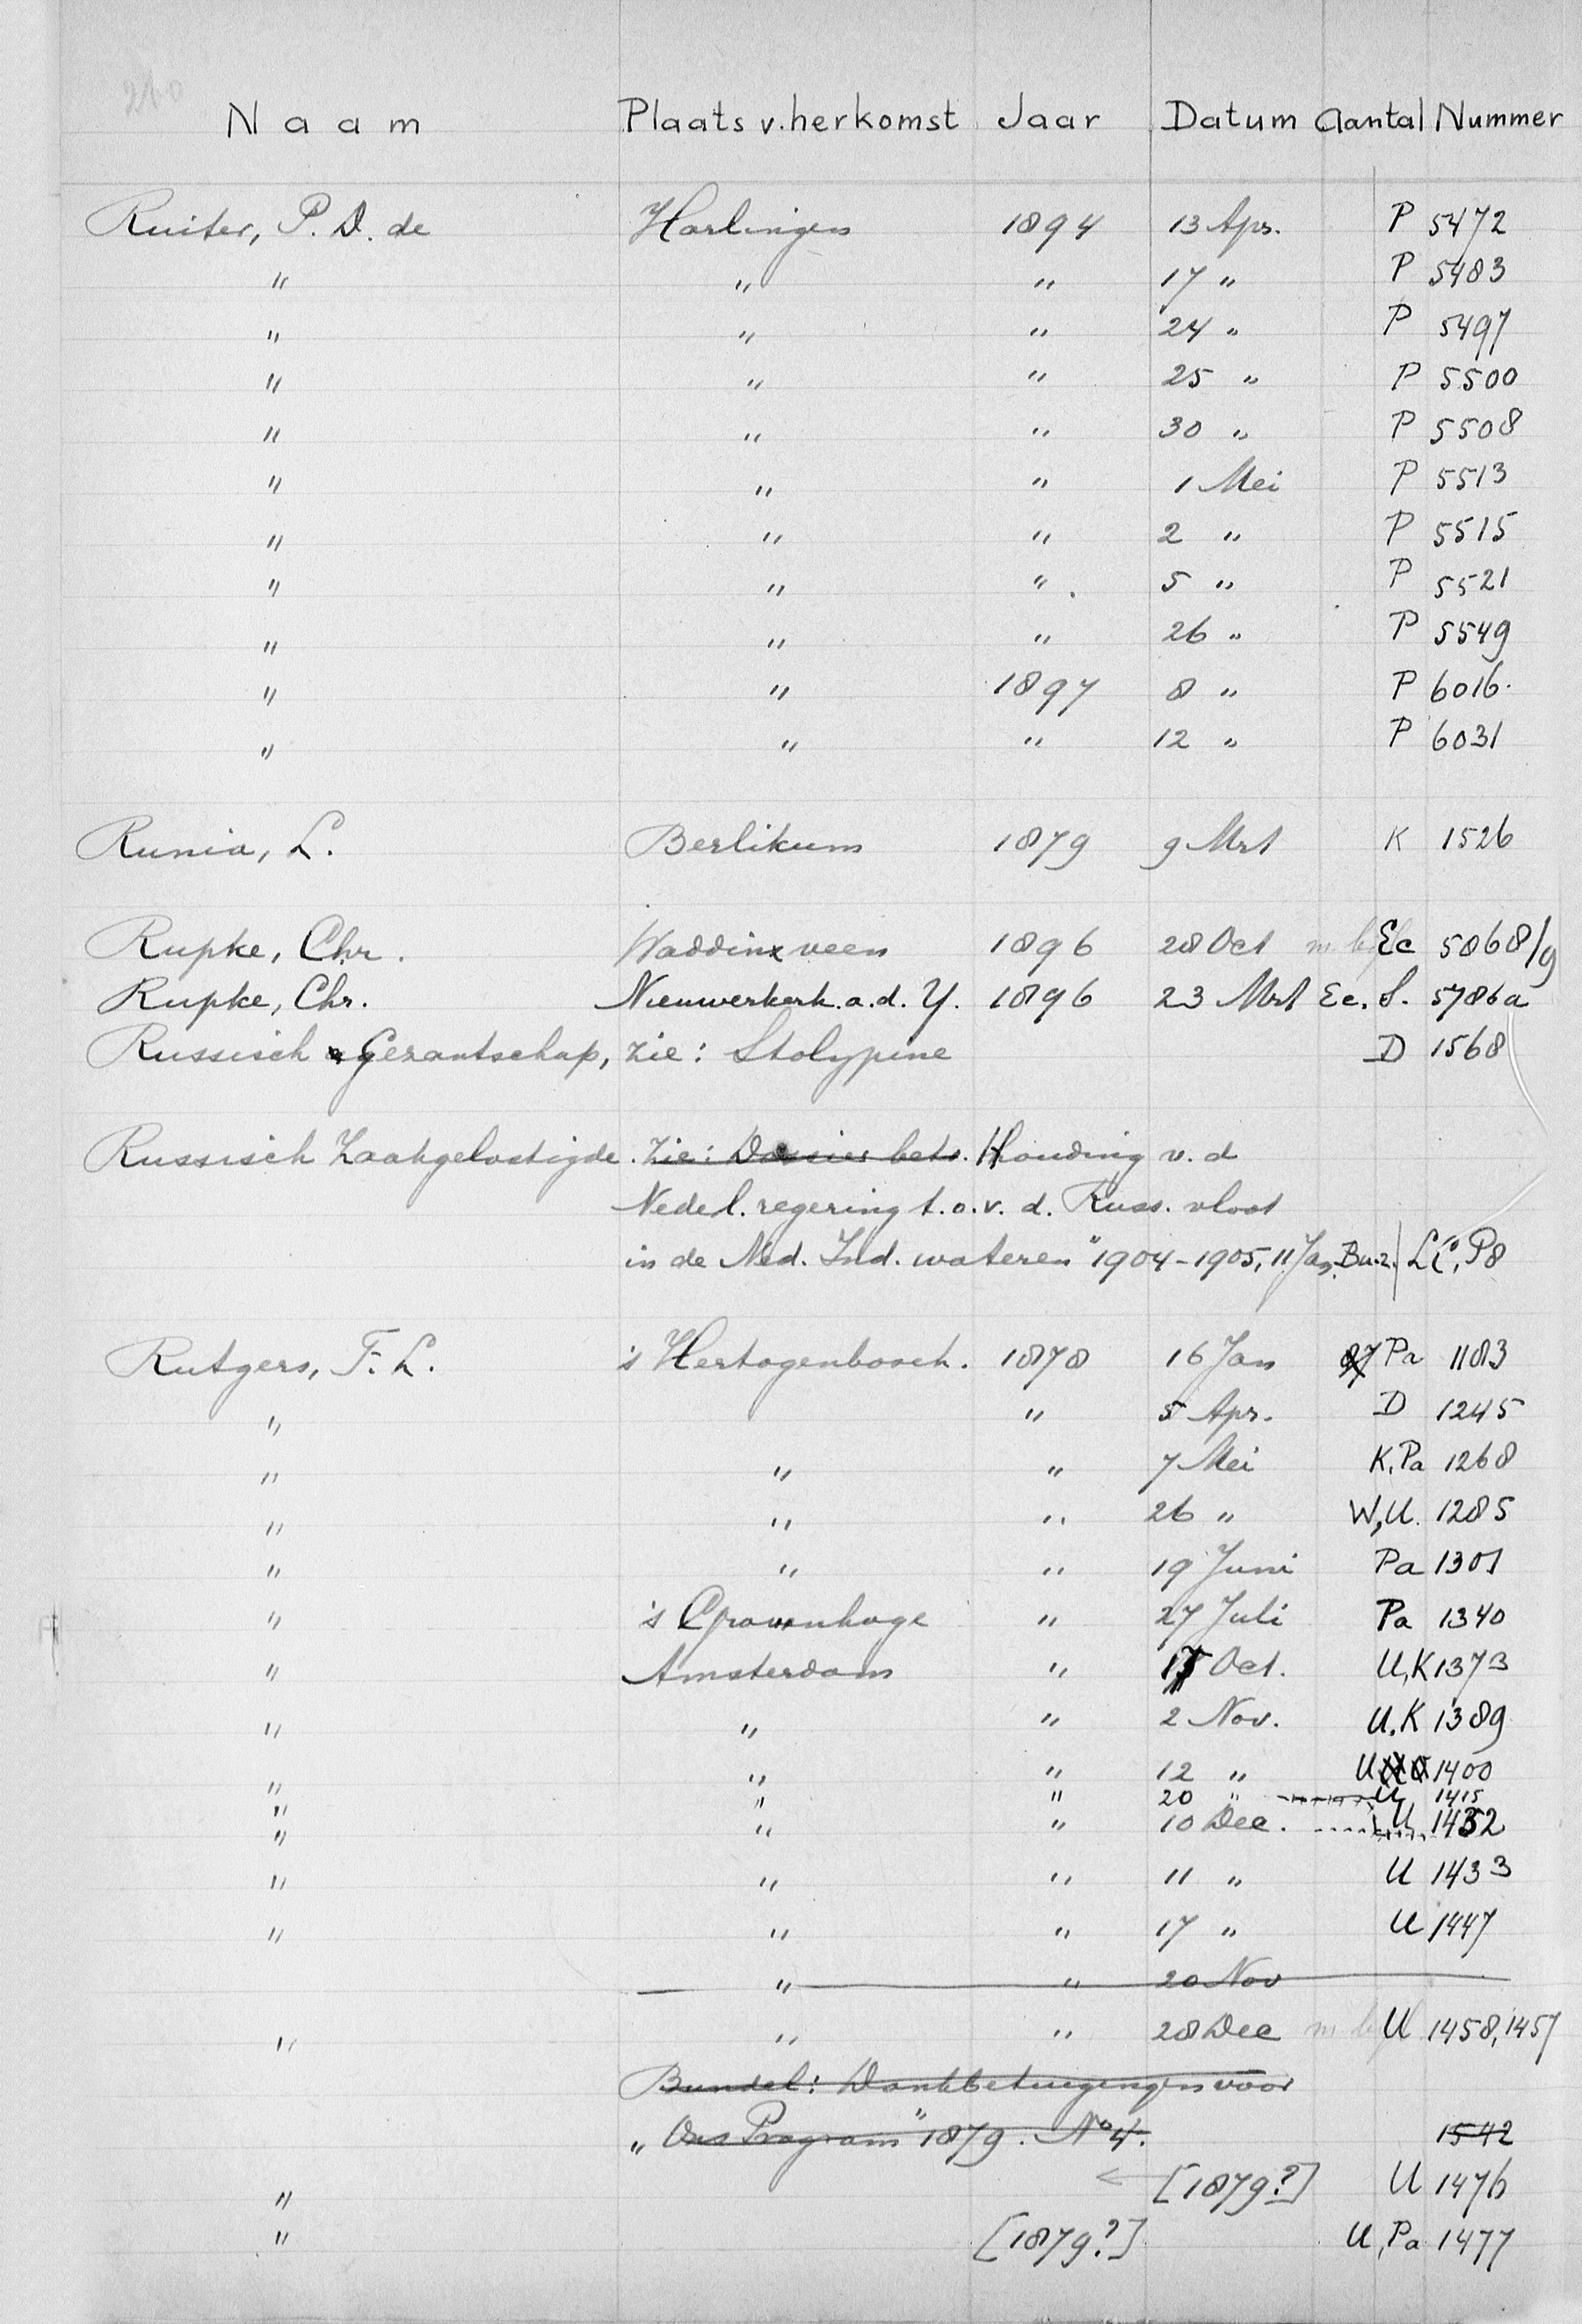 210
Naam Plaats v. herkomst Jaar Datum Aantal Nummer
Ruiter, P. D. de Harlingen 1894 13 Apr. P 5472
" " " 17 " P 5483
" " " 24 " P 5497
" " " 25 " P 5500
" " " 30 " P 5508
" " " 1 Mei P 5513
" " " 2 " P 5515
" " " 5 " P 5521
" " " 26 " P 5549
" " 1897 8 " P 6016.
" " " 12 " P 6031
Runia, L. Berlikum 1879 9 Mrt K 1526
Rupke, Chr. Waddinxveen 1896 28 Oct Ec 5068/9
Rupke, Chr. Nieuwerkerk a.d. Y. 1896 23 Mrt Ec. S. 5786a
Russisch Gezantschap, zie: Stolypine D 1568
Russisch Zaakgelastigde. Zie: Dossier betr. Houding v. d
Nedel. regering t.o.v. d. Russ. vloot
in de Ned. Ind. wateren" 1904-1905, 11 Jan. Bu.z. P8
Rutgers, F. L. 's Hertogenbosch. 1878 16 Jan Pa 1183
" " 5 Apr. D 1245
" " " 7 Mei K, Pa 1268
" " " 26 " W, U. 1285
" " " 19 Juni Pa 1301
" 's Gravenhage " 27 Juli Pa 1340
" Amsterdam " Oct. U, K 1373
" " " 2 Nov. U. K 1389
" " " 12 " U 1400
" " " 20 " U 1415
" " " 10 Dec. U 1432
" " " 11 " U 1433
" " " 17 " U 1447
" " 20 Nov
" " " 28 Dec U 1458, 1457
Bundel: Dankbetuigingen voor
"Ons Program" 1879. No 4. 1542
" [1879?] U 1476
" [1879?] U, Pa 1477